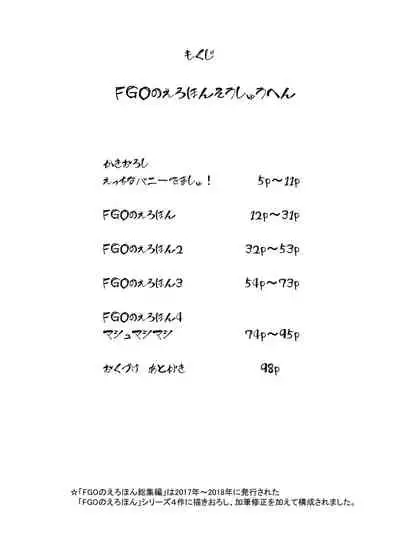 もくじ
FGOのえろほんそうしゅうへん
かきおろし
えっちなバニーでましゅ！ 5p～11p
FGOのえろほん 12p～31p
FGOのえろほん2 32p～53p
FGOのえろほん3 54p～73p
FGOのえろほん4
マシュマシマシ 74p～95p
おくづけ あとがき 98p
☆「FGOのえろほん総集編」は2017年～2018年に発行された
「FGOのえろほん」シリーズ4作に描きおろし、加筆修正を加えて構成されました。